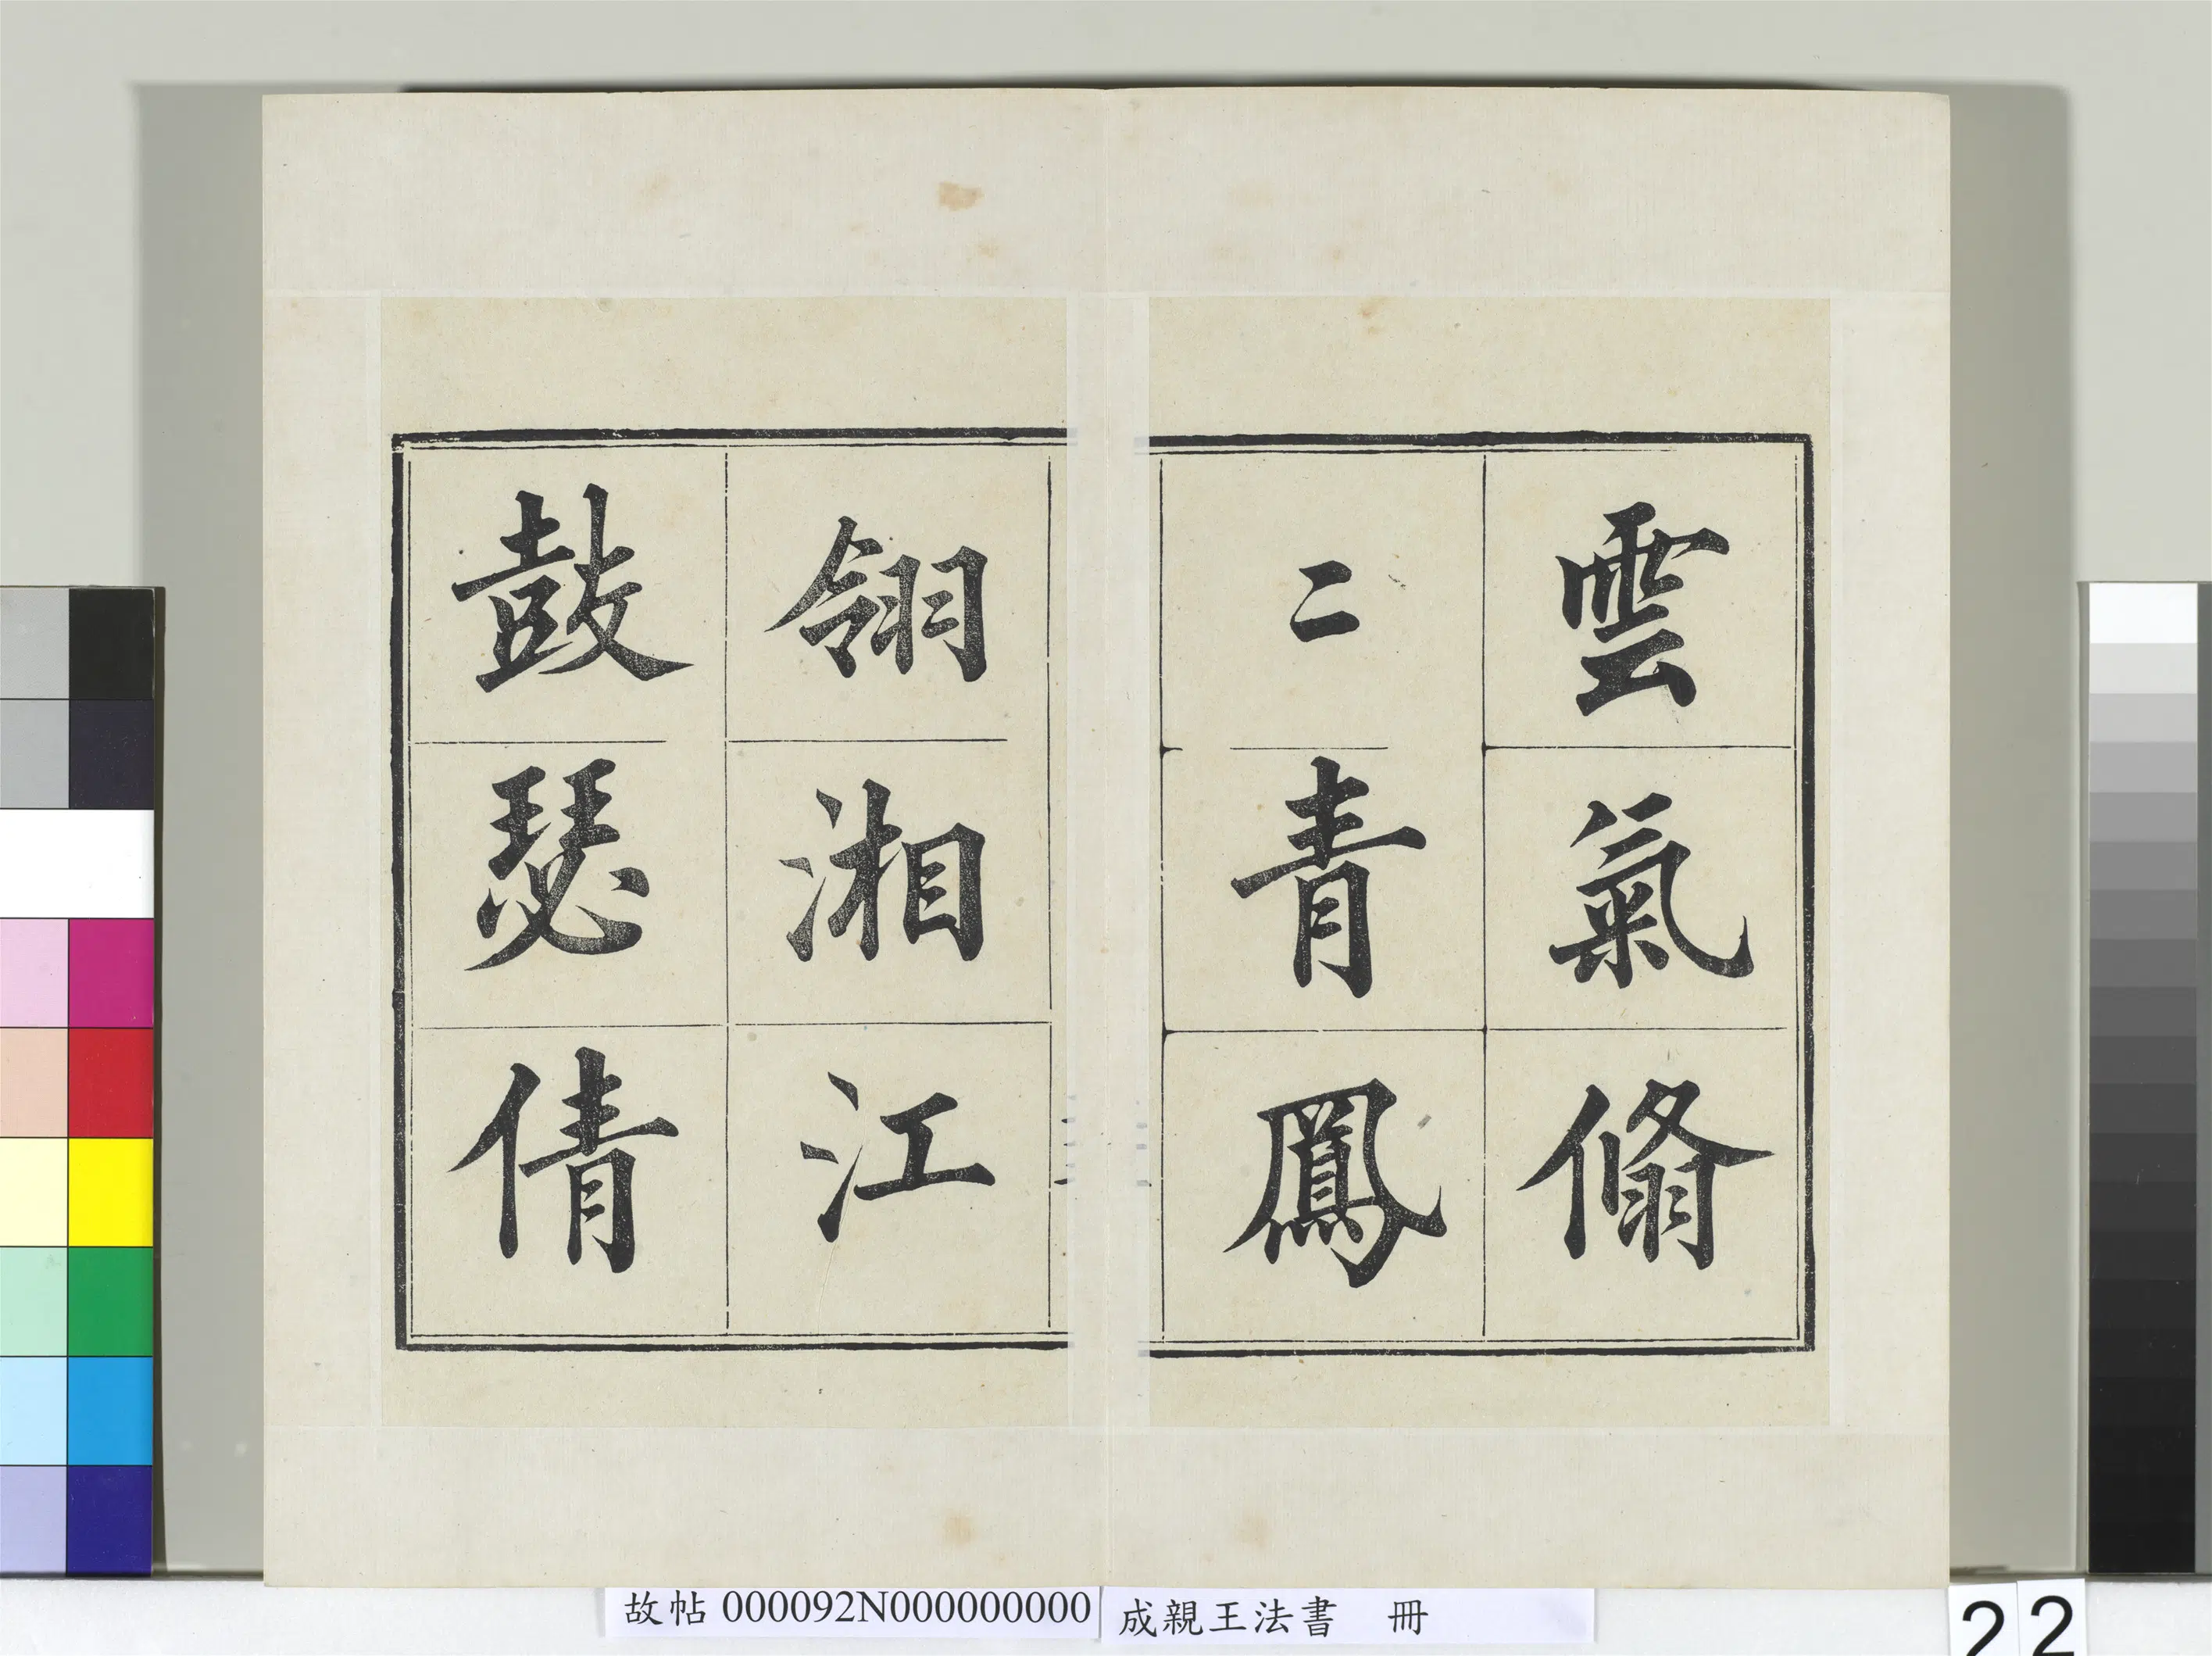 雲氣翛
二青鳳
翎湘江
鼓瑟倩
故帖 000092N000000000
成親王法書 冊
22